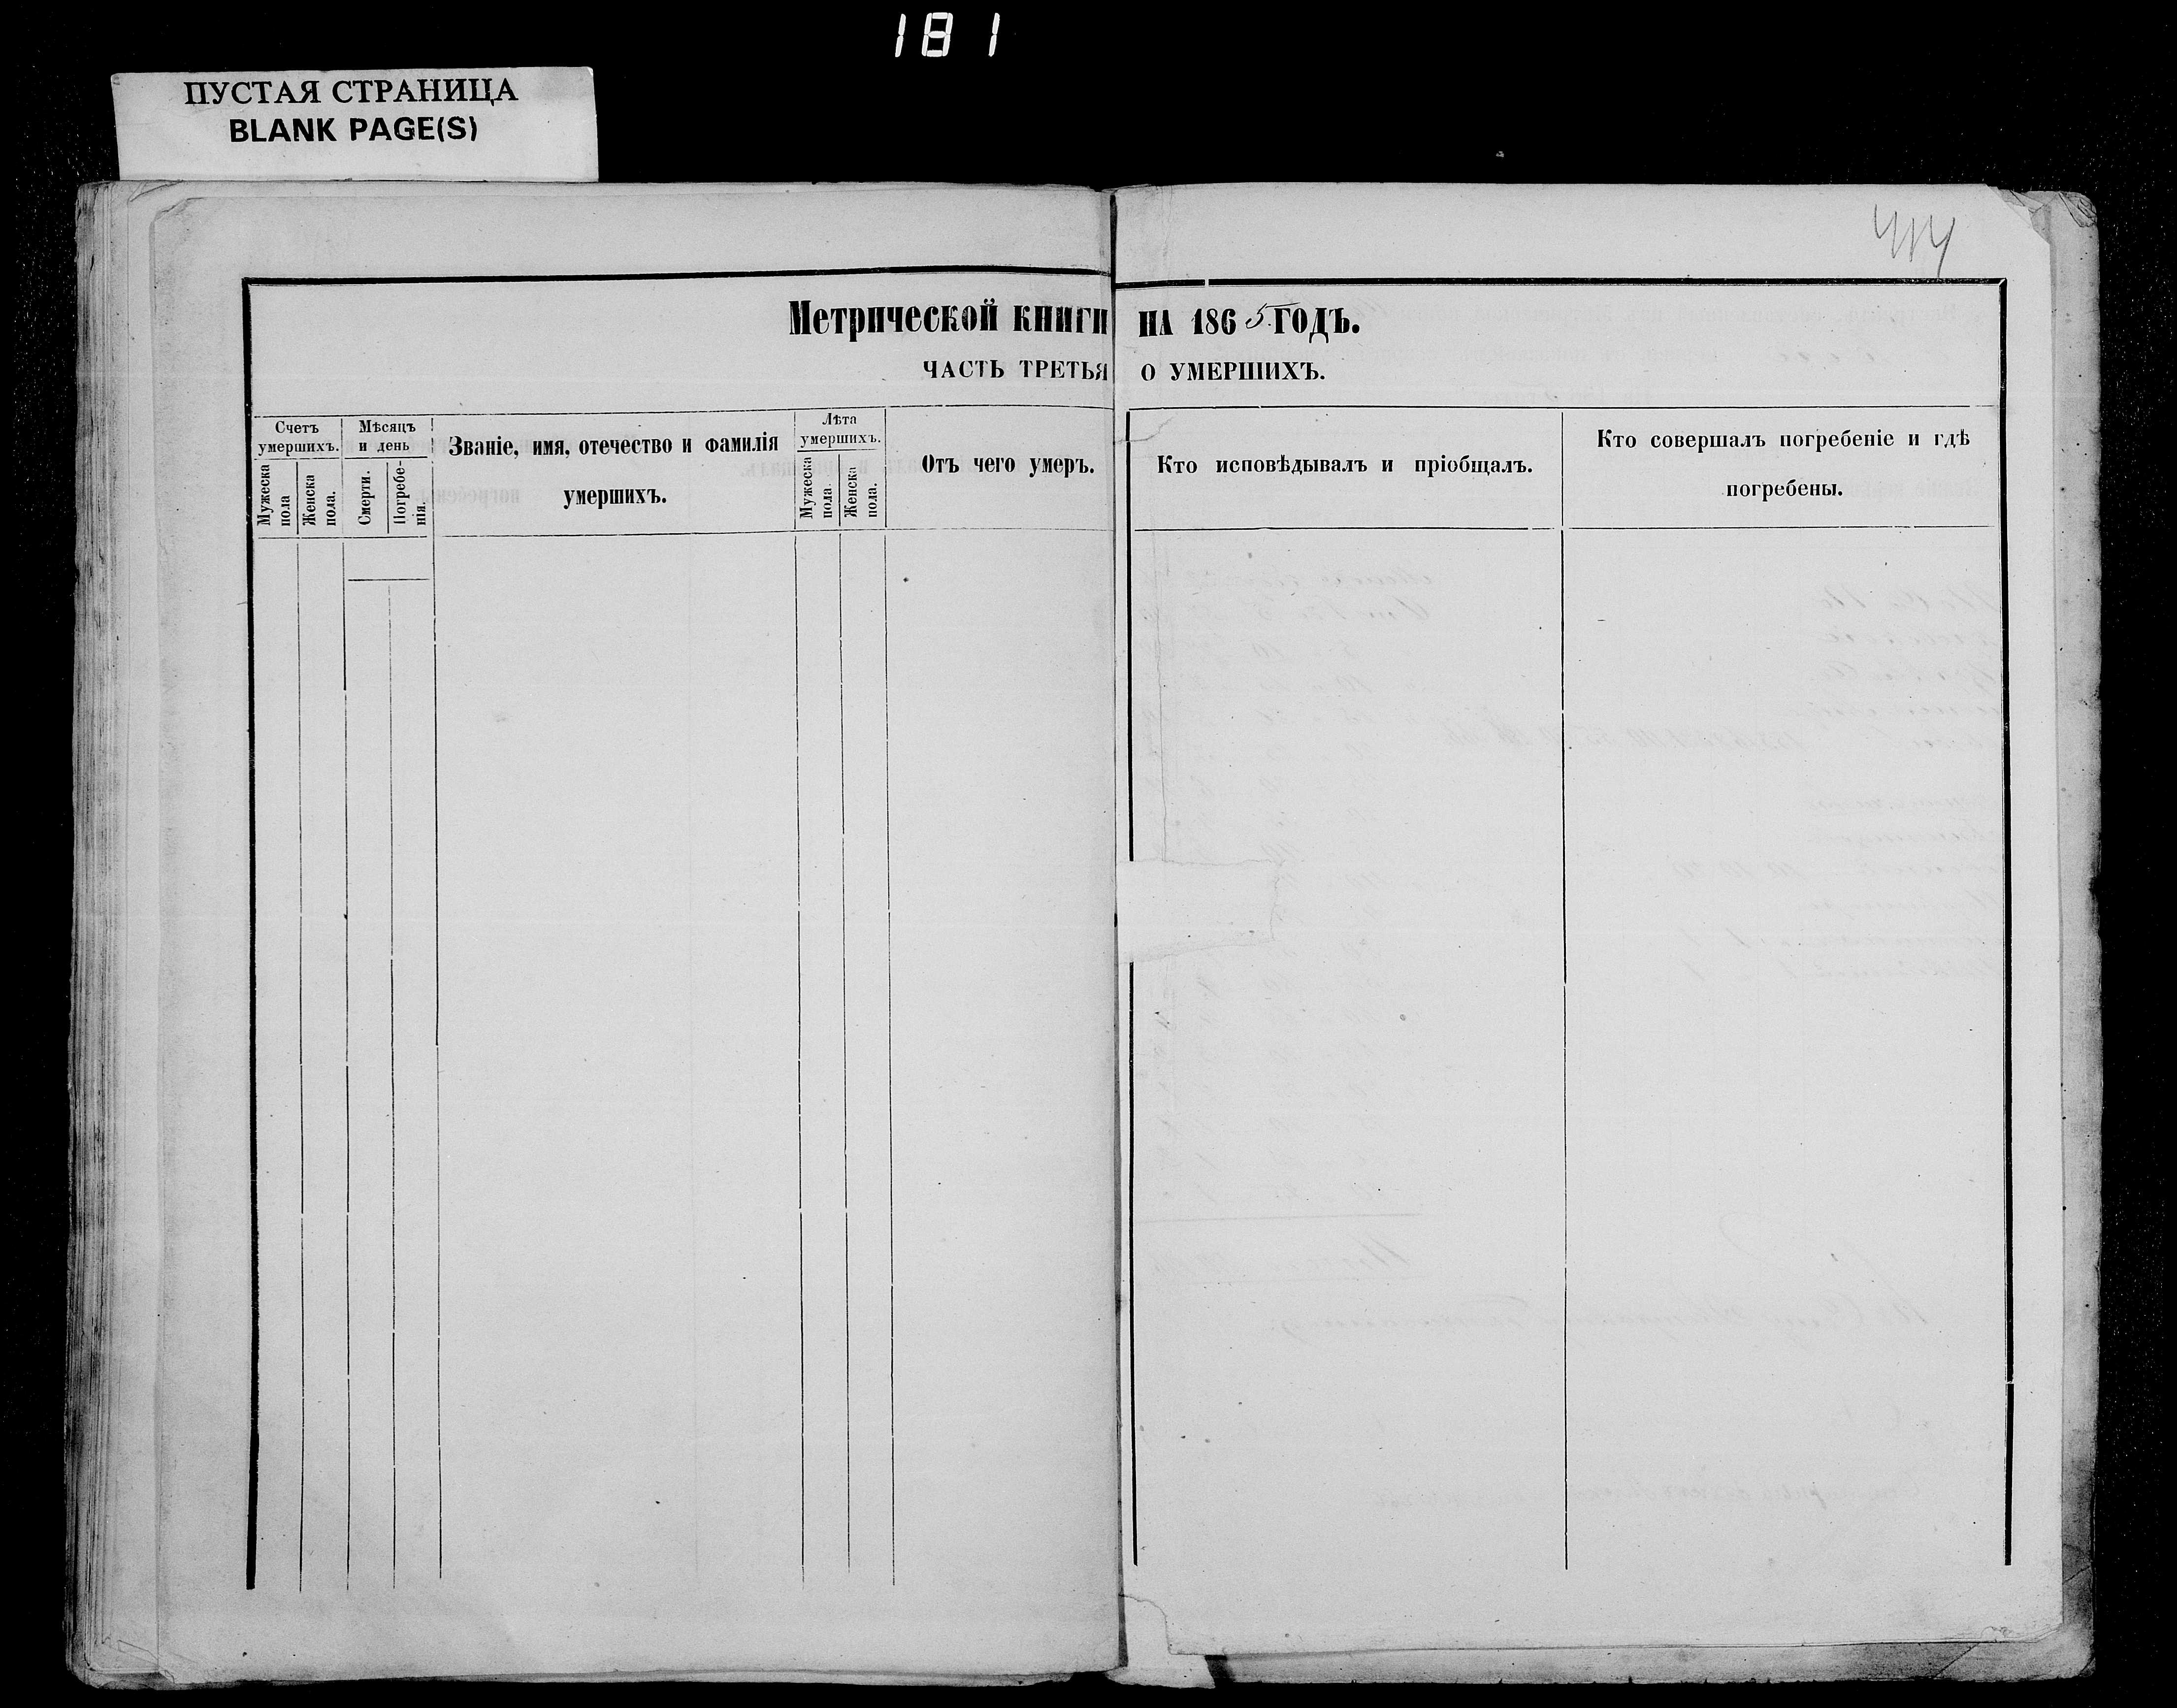 181
ПУСТАЯ СТРАНИЦА
BLANK PAGE(S)
Метрической книги на 1865 годъ.
ЧАСТЬ ТРЕТЬЯ О УМЕРШИХЪ.
Счетъ умершихъ.
Мужеска пола
Женска пола.
Мѣсяцъ и день
Смерти.
Погребе-
нія.
Званіе, имя, отечество и фамилія
умершихъ.
Лѣта умершихъ.
Мужеска пола.
Женска пола.
Отъ чего умеръ.
Кто исповѣдывалъ и пріобщалъ.
Кто совершалъ погребеніе и гдѣ
погребены.